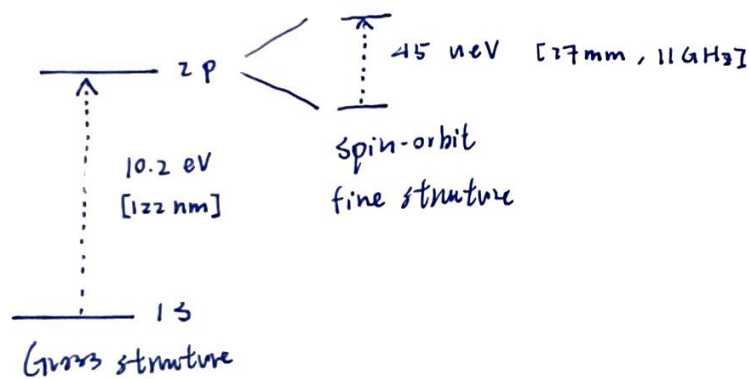 2p
45 neV [27mm, 11GHz]
10.2 eV
[122 nm]
spin-orbit
fine struture
1s
Gross struture